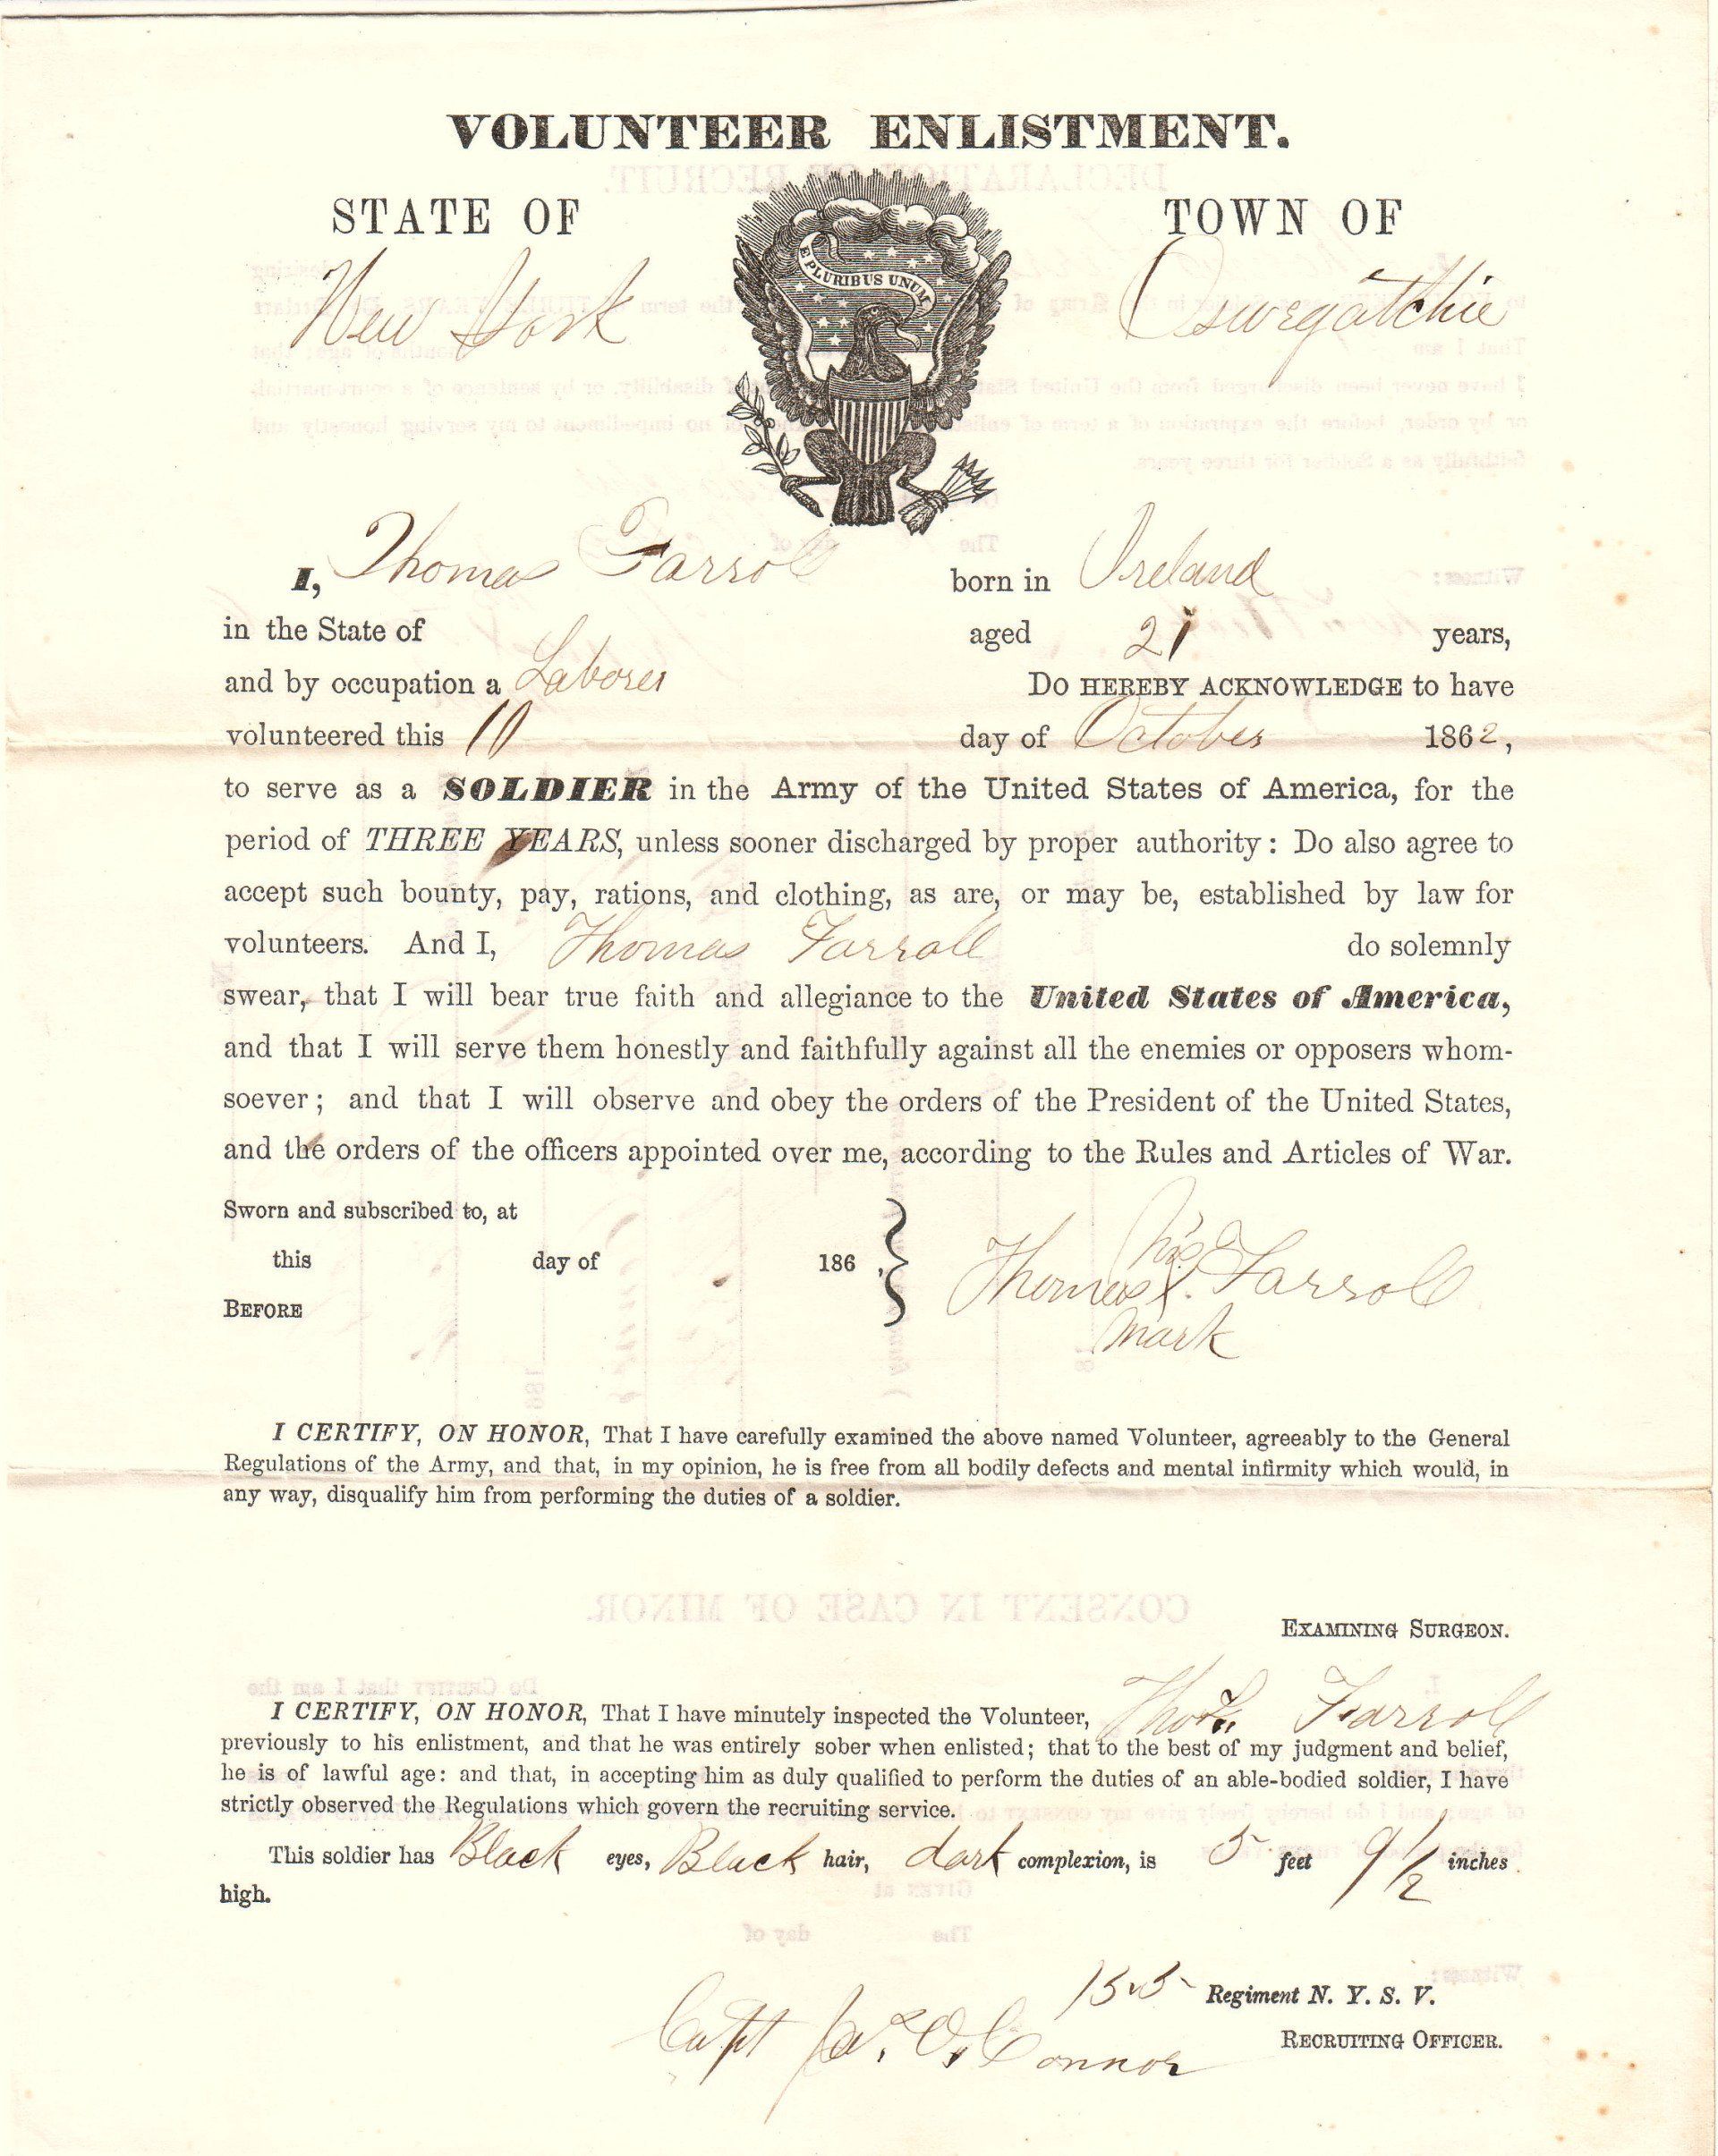 VOLUNTEER ENLISTMENT.
STATE OF TOWN OF
E PLURIBUS UNUM
New York Oswegatchie
I, Thomas Farroll born in Ireland
in the State of aged 21 years,
and by occupation a Laborer Do HEREBY ACKNOWLEDGE to have
volunteered this 10 day of October 1862,
to serve as a SOLDIER in the Army of the United States of America, for the
period of THREE YEARS, unless sooner discharged by proper authority: Do also agree to
accept such bounty, pay, rations, and clothing, as are, or may be, established by law for
volunteers. And I, Thomas Farroll do solemnly
swear, that I will bear true faith and allegiance to the United States of America,
and that I will serve them honestly and faithfully against all the enemies or opposers whom-
soever; and that I will observe and obey the orders of the President of the United States,
and the orders of the officers appointed over me, according to the Rules and Articles of War.
Sworn and subscribed to, at
this day of 186 ,
BEFORE
his
Thomas X. Farroll
mark
I CERTIFY, ON HONOR, That I have carefully examined the above named Volunteer, agreeably to the General
Regulations of the Army, and that, in my opinion, he is free from all bodily defects and mental infirmity which would, in
any way, disqualify him from performing the duties of a soldier.
EXAMINING SURGEON.
I CERTIFY, ON HONOR, That I have minutely inspected the Volunteer, Thos. Farroll
previously to his enlistment, and that he was entirely sober when enlisted; that to the best of my judgment and belief,
he is of lawful age: and that, in accepting him as duly qualified to perform the duties of an able-bodied soldier, I have
strictly observed the Regulations which govern the recruiting service.
This soldier has Black eyes, Black hair, dark complexion, is 5 feet 9 1/2 inches
high.
155 Regiment N. Y. S. V.
Capt O'Connor RECRUITING OFFICER.